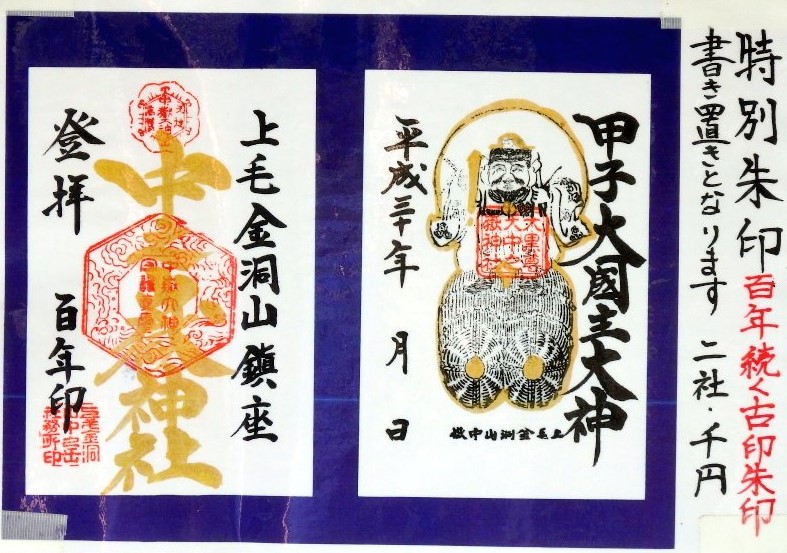 特別朱印 百年続く古印朱印
書き置きとなります 二社・千円
甲子大國主大神
平成三十年 月 日
上毛金洞山中嶽
上毛金洞山鎮座
中之嶽神社
登拝 百年印